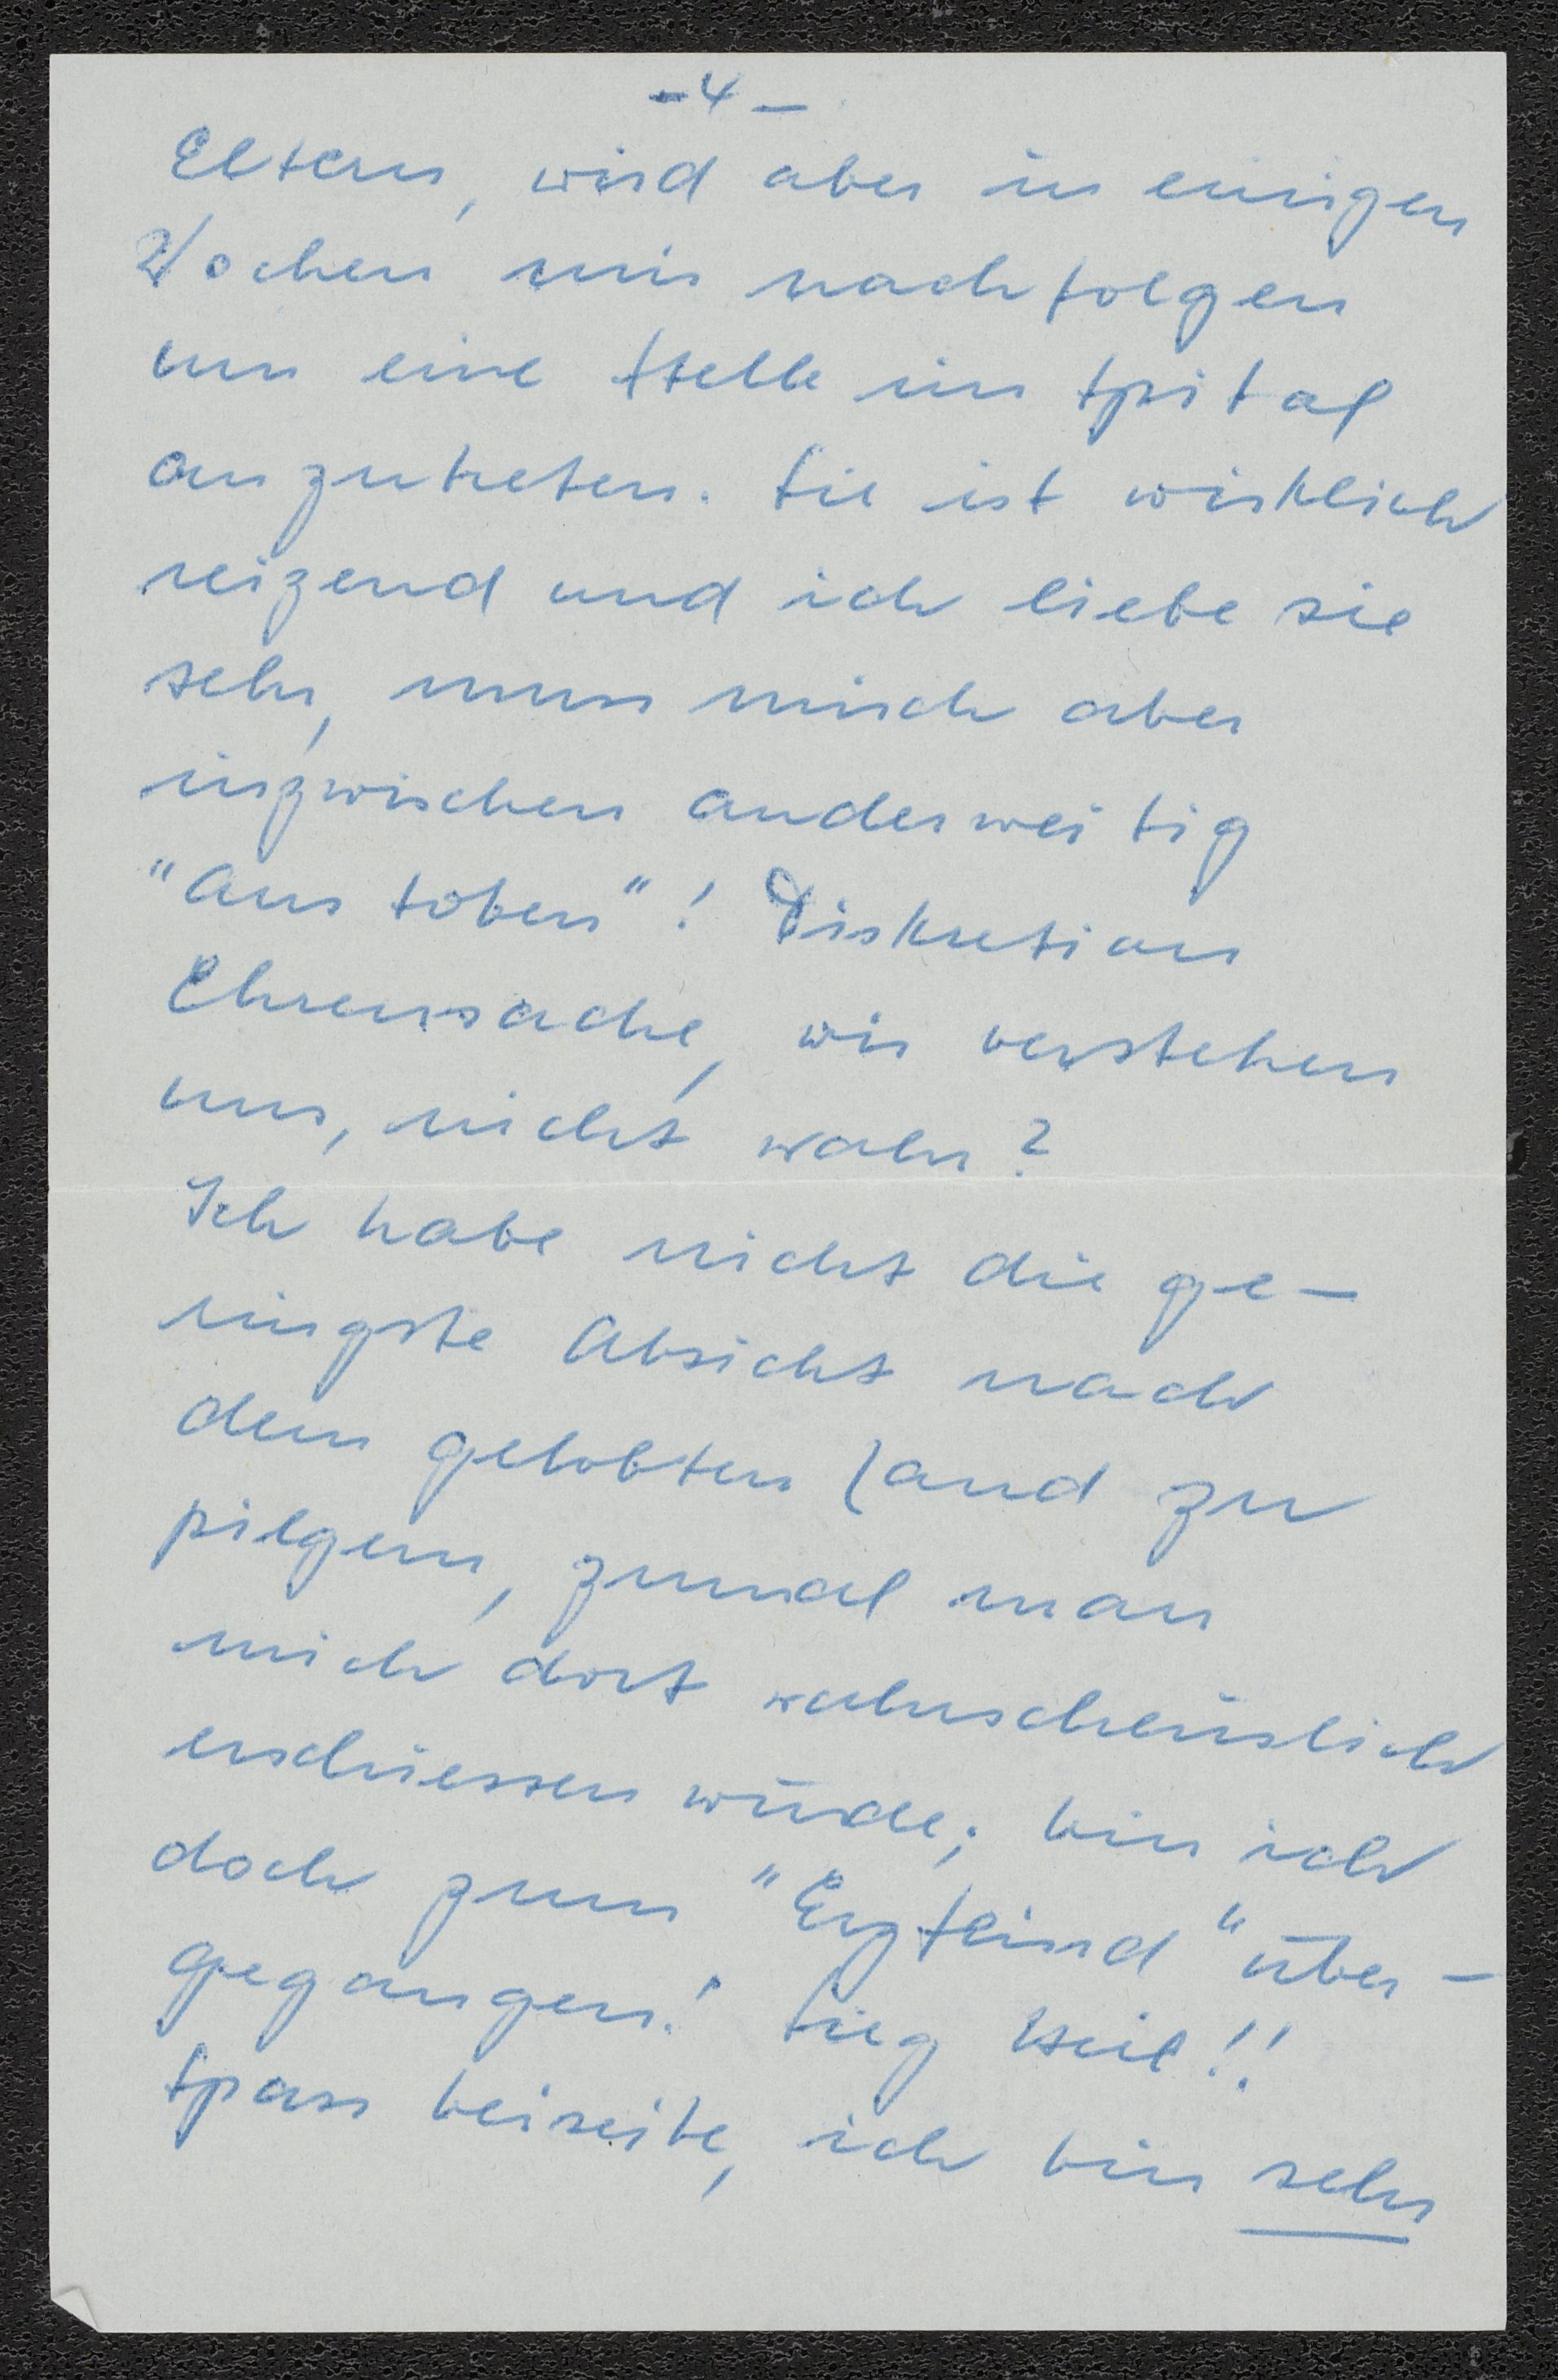 -4-
Eltern, wird aber in einigen
Wochen mir nachfolgen
um eine Stelle im Spital
anzutreten. Sie ist wirklich
reizend und ich liebe sie
sehr, muss misch aber
inzwischen anderweitig
"austoben"! Diskretion
Ehrensache, wir verstehen
uns, nicht wahr?
Ich habe nicht die ge-
ringste Absicht nach
dem gelobten Land zu
pilgern, zumal man
mich dort wahrscheinlich
erschiessen würde; bin ich
doch zum "Erzfeind" über-
gegangen! Sieg Heil!!
Spass beiseite, ich bin sehr